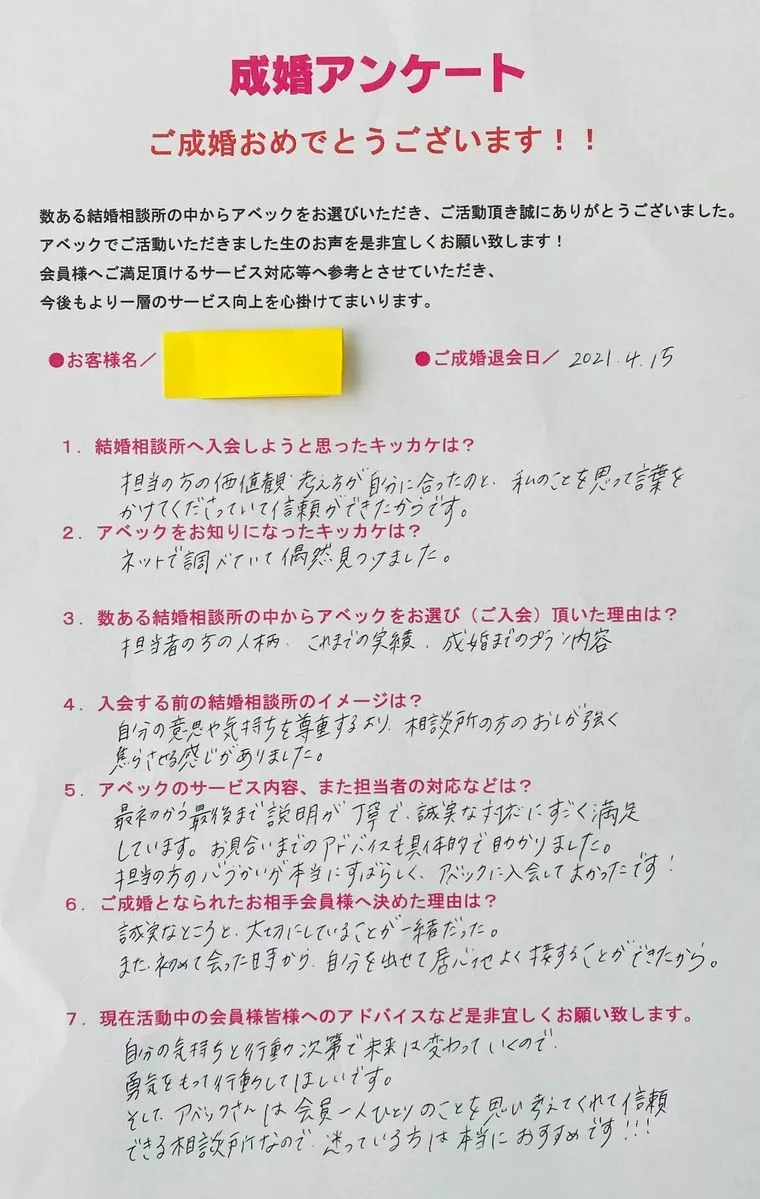 成婚アンケート
ご成婚おめでとうございます！！
数ある結婚相談所の中からアベックをお選びいただき、ご活動頂き誠にありがとうございました。
アベックでご活動いただきました生のお声を是非宜しくお願い致します！
会員様へご満足頂けるサービス対応等へ参考とさせていただき、
今後もより一層のサービス向上を心掛けてまいります。
●お客様名／ ●ご成婚退会日／ 2021.4.15
１．結婚相談所へ入会しようと思ったキッカケは？
担当の方の価値観・考え方が自分に合ったのと、私のことを思って言葉を
かけてくださっていて信頼ができたからです。
２．アベックをお知りになったキッカケは？
ネットで調べていて偶然見つけました。
３．数ある結婚相談所の中からアベックをお選び（ご入会）頂いた理由は？
担当者の方の人柄、これまでの実績、成婚までのプラン内容
４．入会する前の結婚相談所のイメージは？
自分の意思や気持ちを尊重するより、相談所の方のおしが強く
焦らさせる感じがありました。
５．アベックのサービス内容、また担当者の対応などは？
最初から最後まで説明が丁寧で、誠実な対応にすごく満足
しています。お見合いまでのアドバイスも具体的で助かりました。
担当の方の心づかいが本当にすばらしく、アベックに入会してよかったです！
６．ご成婚となられたお相手会員様へ決めた理由は？
誠実なところと、大切にしていることが一緒だった。
また、初めて会った時から、自分を出せて居心地よく接することができたから。
７．現在活動中の会員様皆様へのアドバイスなど是非宜しくお願い致します。
自分の気持ちと行動次第で未来は変わっていくので、
勇気をもって行動してほしいです。
そして、アベックさんは会員一人ひとりのことを思い考えてくれて信頼
できる相談所なので、迷っている方は本当におすすめです!!!